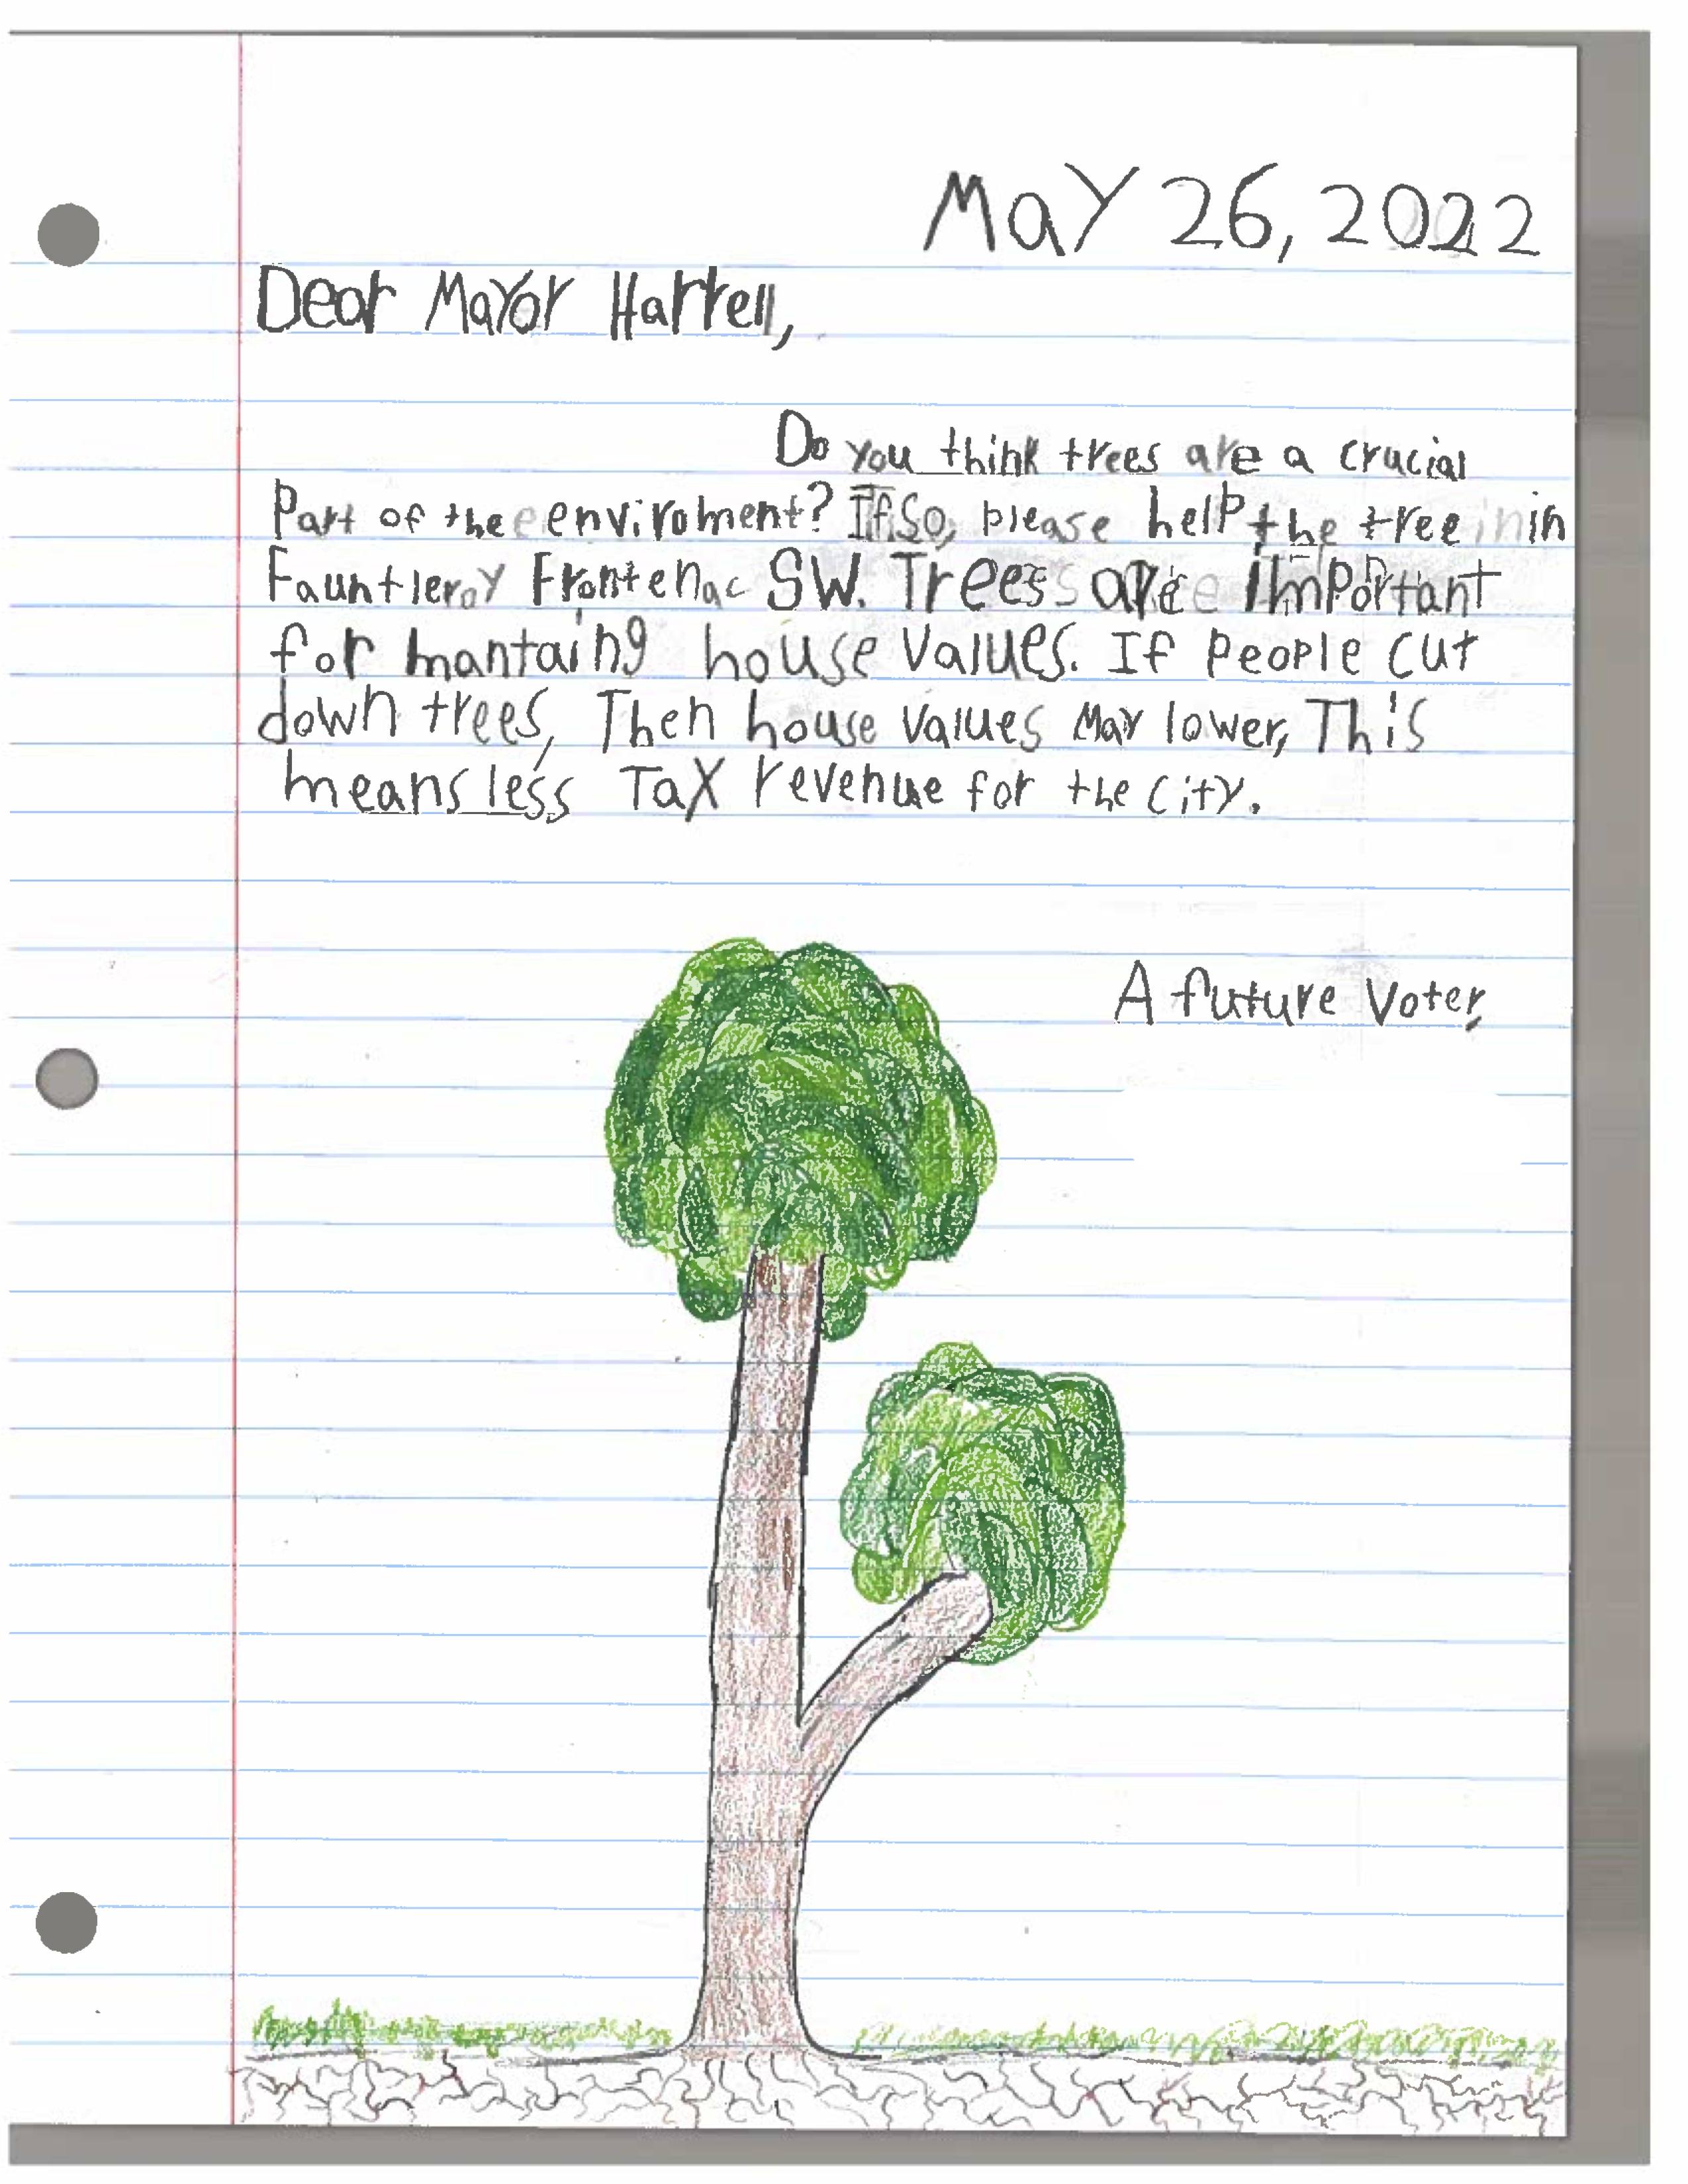 May 26, 2022
Dear Mayor Harrell,
Do you think trees are a crucial
Part of the enviroment? If so, please help the tree in
Fauntleroy Frontenac SW. Trees are important
for mantaing house values. If people cut
down trees, Then house values may lower, This
means less Tax revenue for the city.
A future Voter,